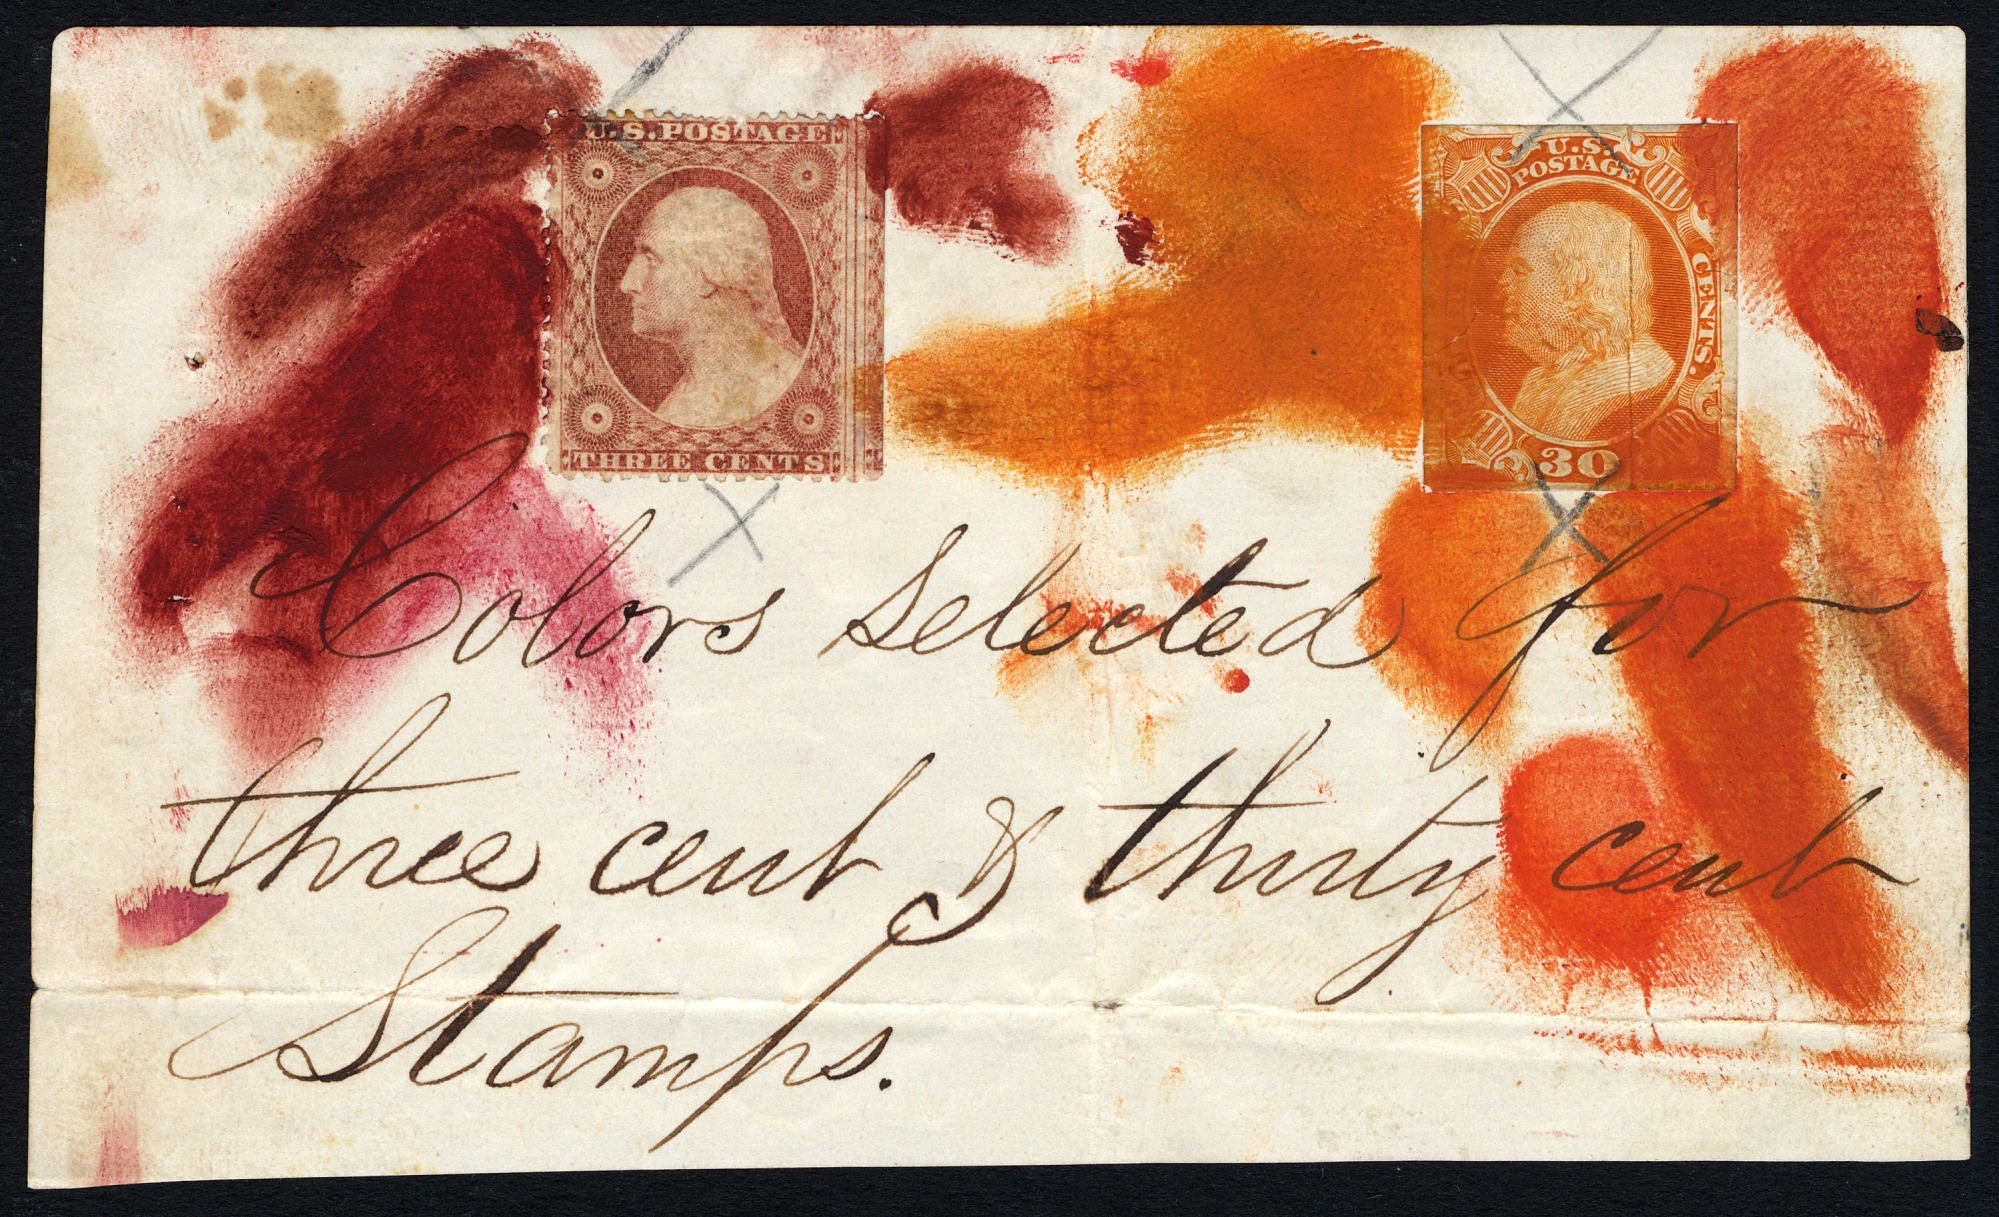 U.S. POSTAGE
THREE CENTS
U.S.
POSTAGE
CENTS.
30
Colors selected for
three cent & thirty cent
Stamps.